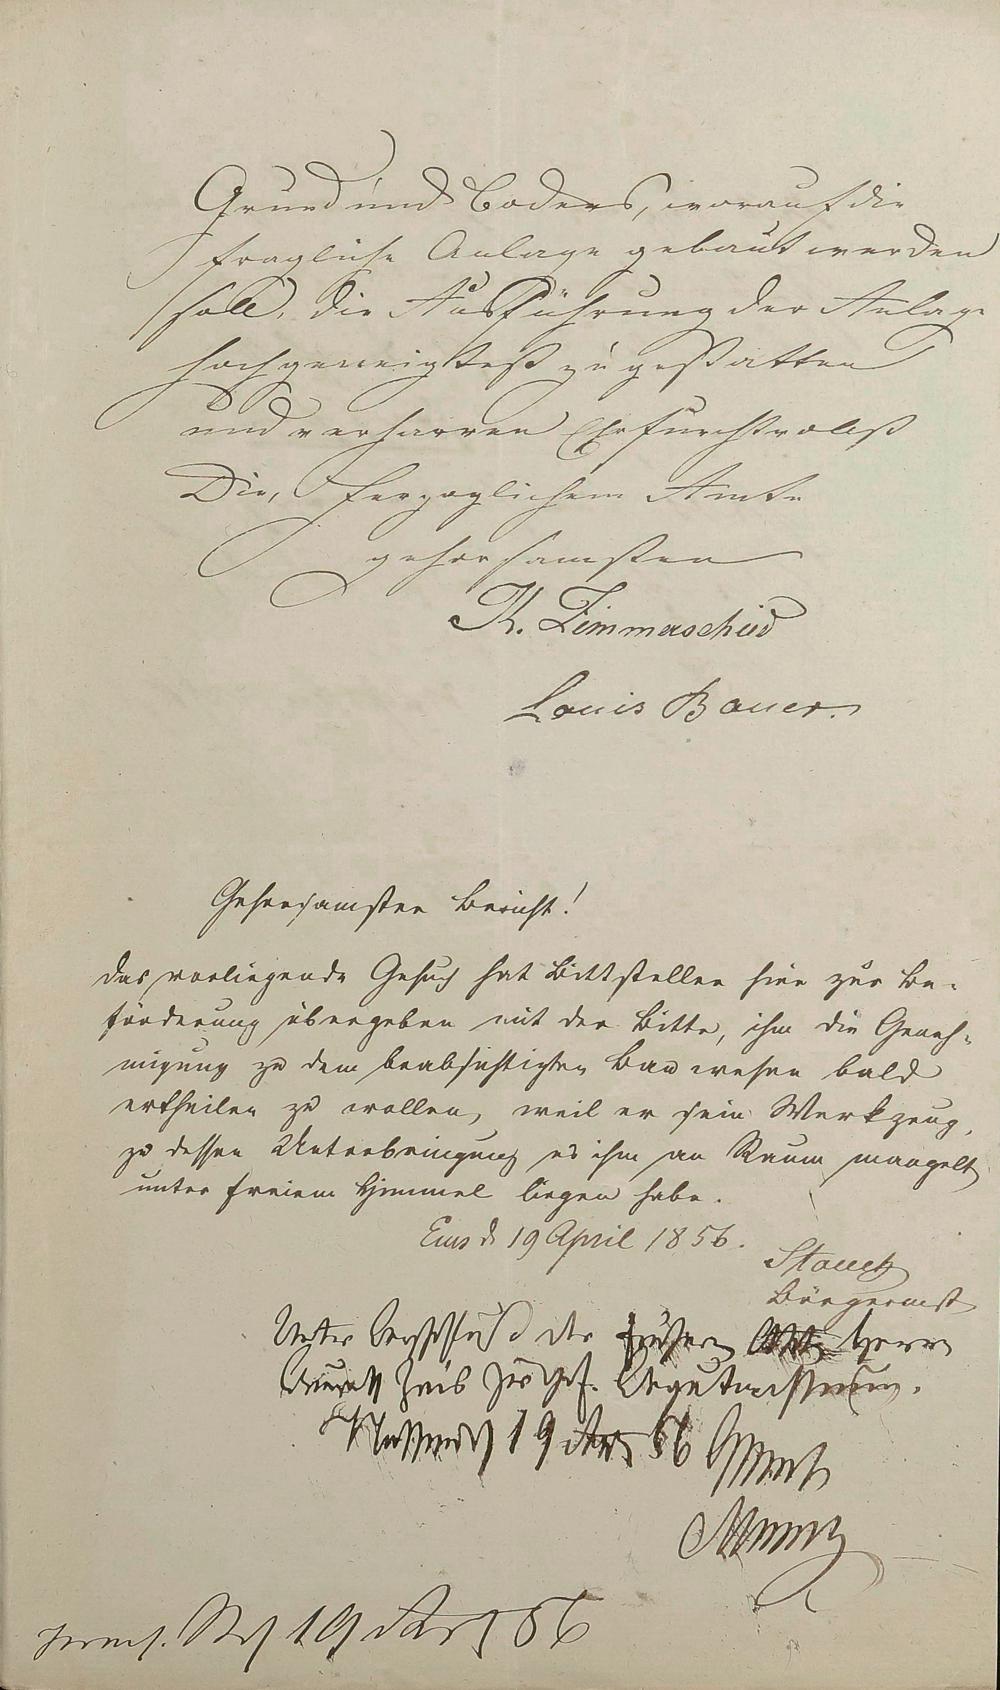 Grund und Bodens, worauf die
fragliche Anlage gebaut werden
soll, die Ausführung der Anlage
hochgeneigtest zu gestatten
und verharren Ehrfurchtvollst
Die, Herzoglichem Amte
gehorsamsten
K. Zimmerschied
Louis Bauer.
Gehorsamster Bericht!
Das vorliegende Gesuch hat Bittsteller hier zur Be-
förderung übergeben mit der Bitte, ihm die Geneh-
migung zu dem beabsichtigten Bauwesen bald
ertheilen zu wollen, weil er sein Werkzeug,
zu dessen Unterbringung es ihm an Raum mangelt
unter freiem Himmel liegen habe.
Ems d 19 April 1856.
Bürgermst
Unter der Herrn
zur Begutachtung.
19 56
19 56